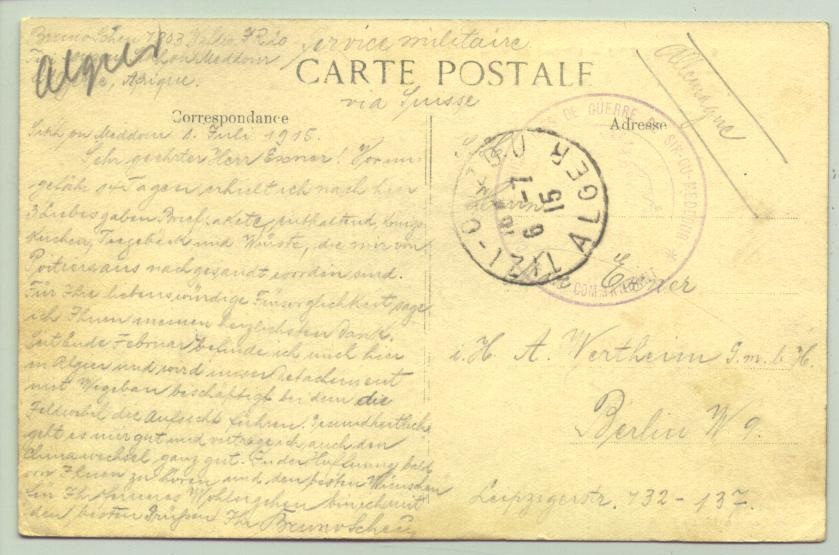 Service militaire
Alger
CARTE POSTALE
via Suisse
Allemagne
Correspondance
Adresse
Meddour 1. Juli 1915.
Sehr geehrter Herr Exner! Vor un-
gefähr Tagen erhielt ich nach hier
3 Liebesgaben enthaltend, Honig-
Kuchen, Teegebäck und Würste, die mir von
Poitiers aus nachgesandt worden sind.
Für Ihre liebenswürdige Fürsorglichkeit, sage
ich Ihnen meinen herzlichsten Dank.
Seit Ende Februar befinde ich mich hier
in Algier und wird unser Detachement
mit Wegebau beschäftigt bei dem die
Feldwebel die Aufsicht führen. Gesundheitlich
geht es mir gut und vertrage ich auch den
Climawechsel ganz gut. In der Hoffnung bald
von Ihnen zu hören und den besten Wünschen
für Ihr ferneres Wohlergehen bin ich mit
den besten Grüßen Ihr Bruno
TIZI-OUZOU
ALGER
1-7
15
DE GUERRE
Exner
i. H. A. Wertheim G.m.b.H.
Berlin W 9.
Leipzigerstr. 132-137.